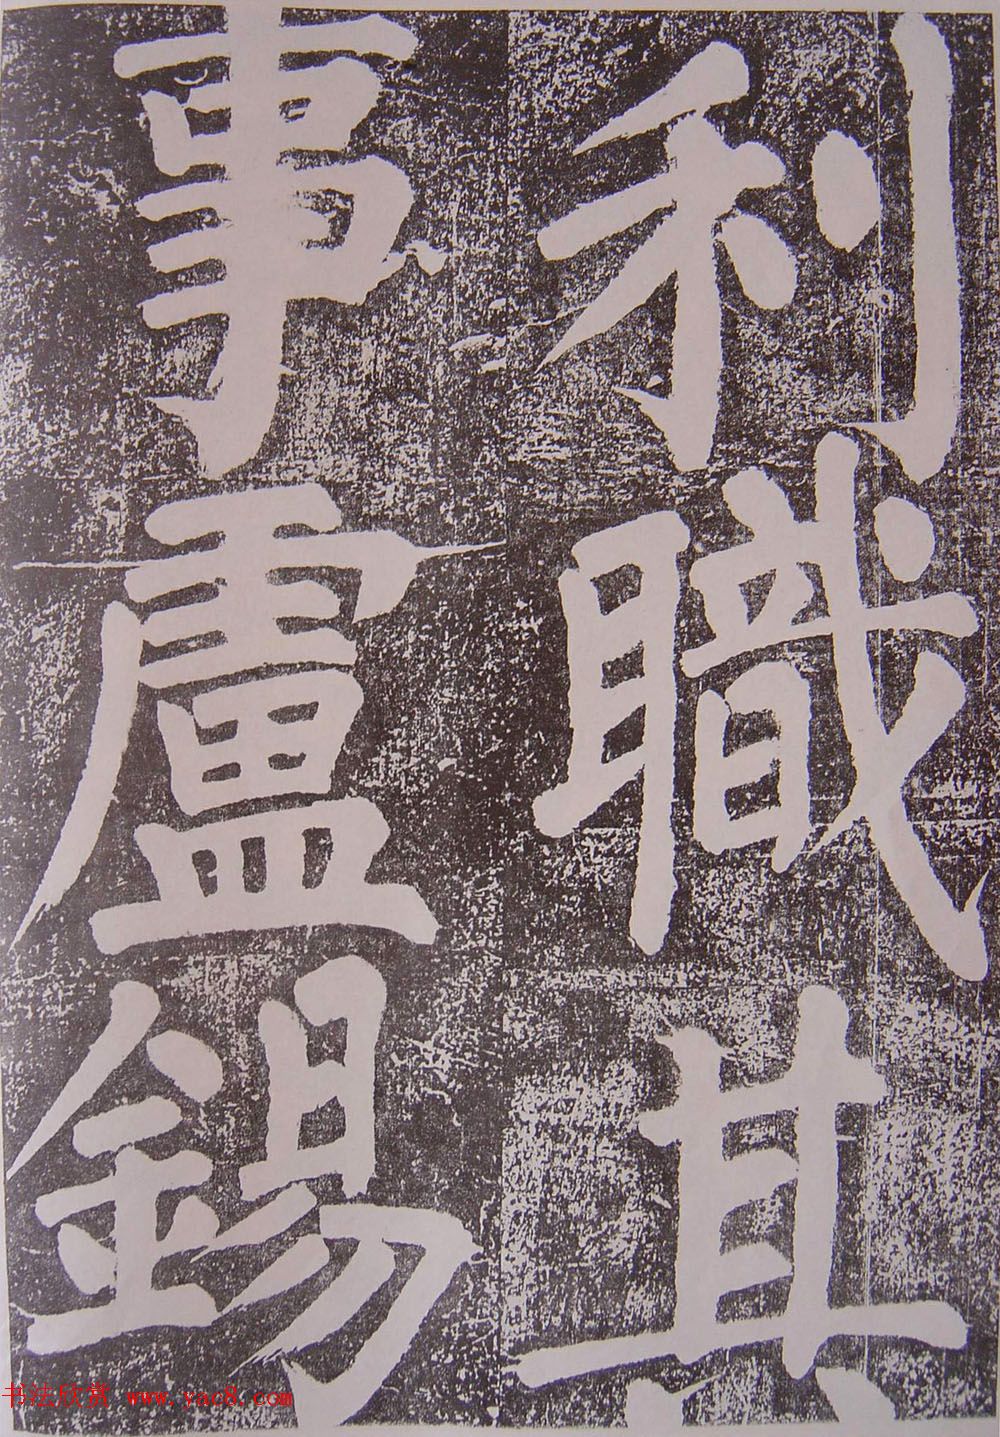 利職其
事盧錫
书法欣赏 www.yac8.com